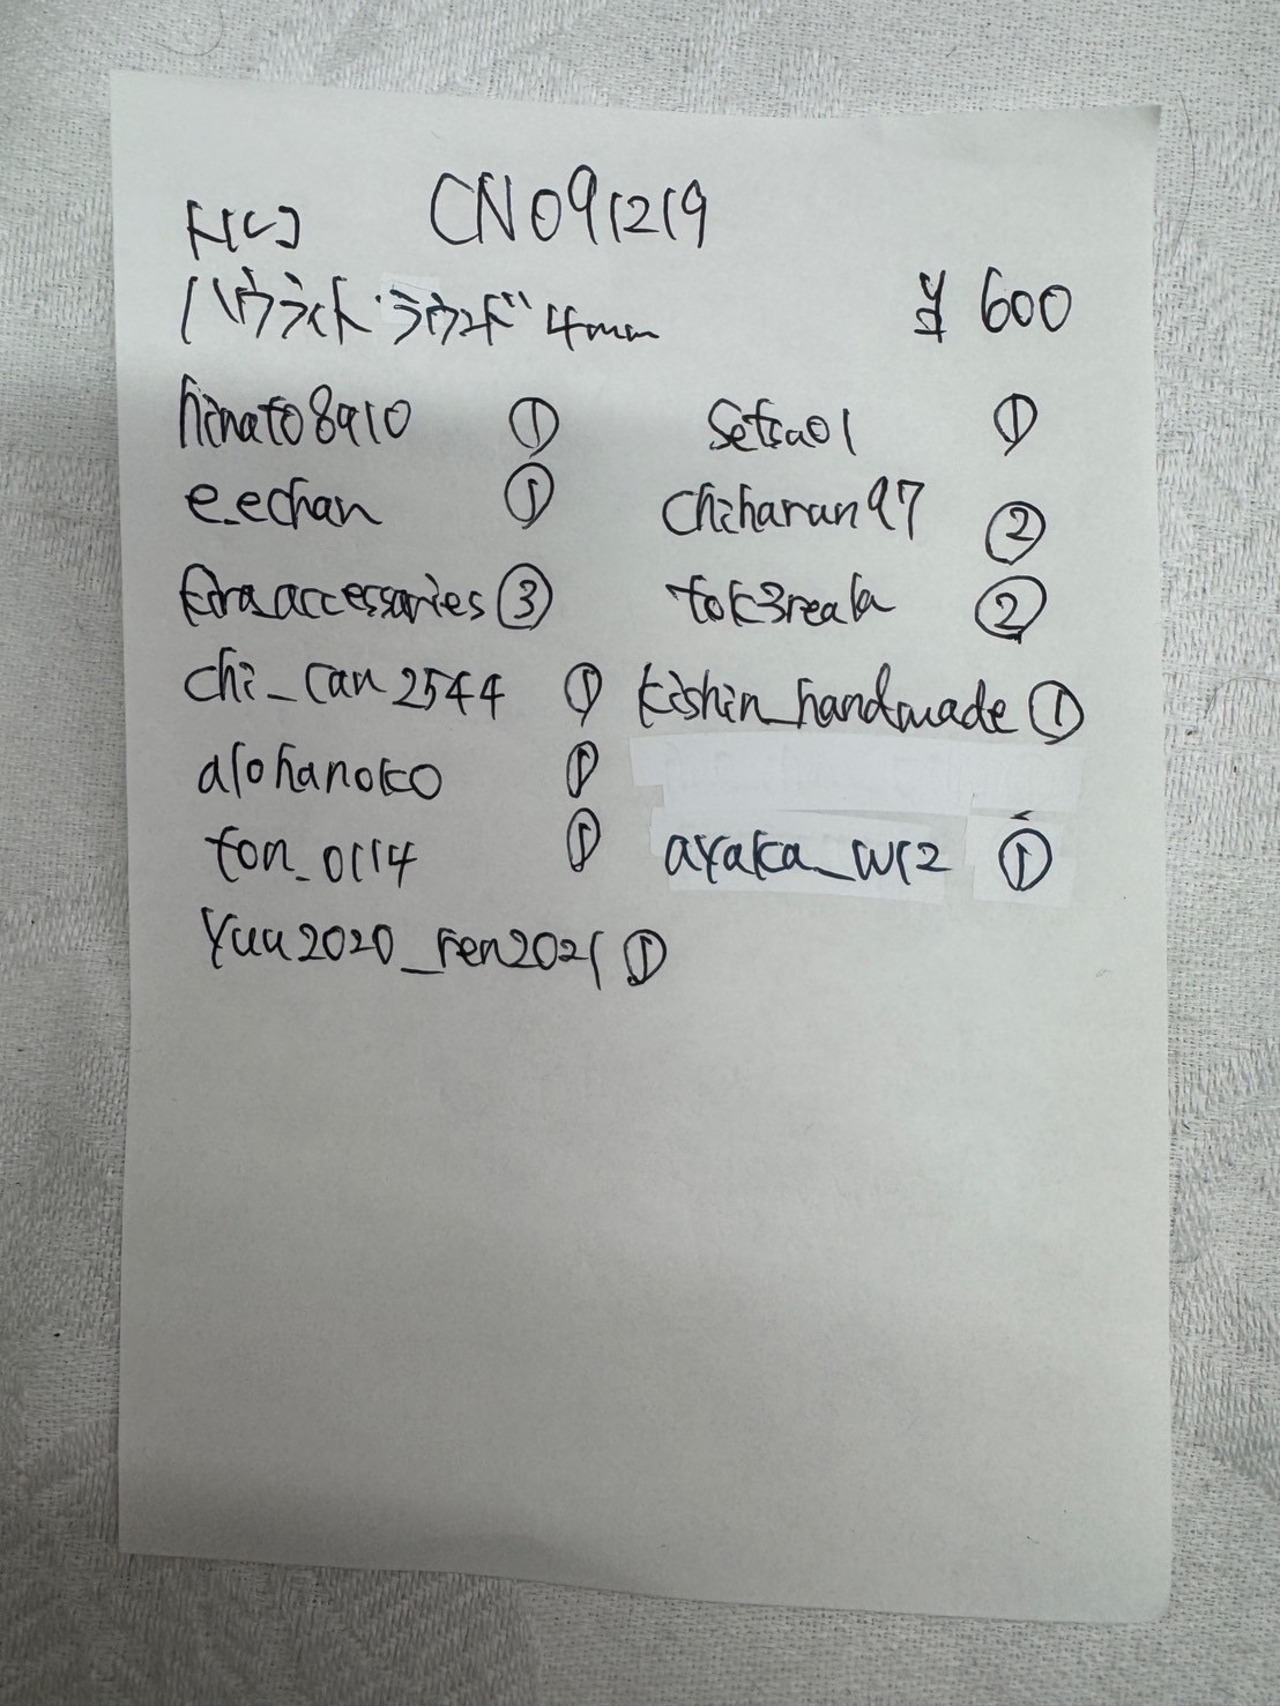 CN091219
ハウライト・ラウンド 4mm ¥600
hinato8910 ① Setsu01 ①
e.echan ① chiharun97 ②
accessories ③ ②
chi_can2544 ① kishin_handmade ①
alohanoko ①
ton_0114 ① ayaka_w12 ①
Yuu2020_ren2021 ①